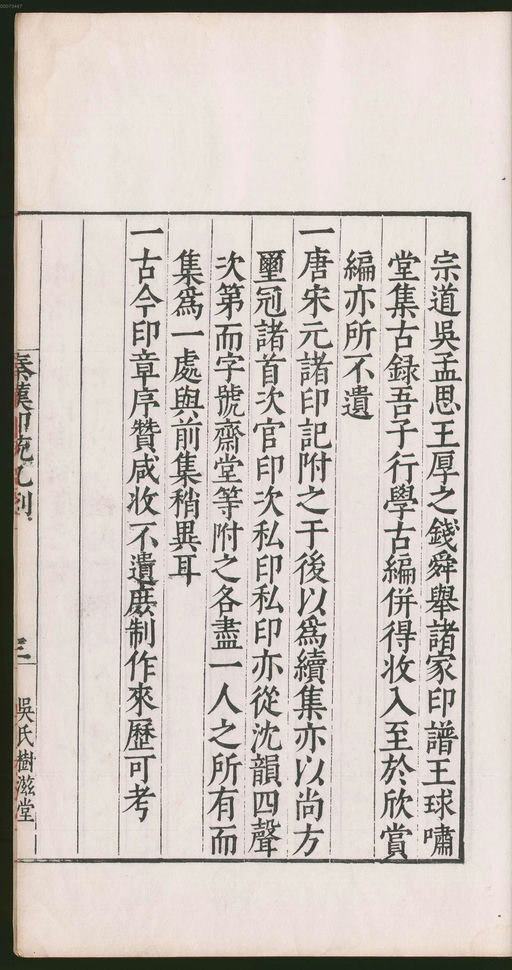 宗道吳孟思王厚之錢舜舉諸家印譜王球嘯
堂集古録吾子行學古編併得收入至於欣賞
編亦所不遺
一唐宋元諸印記附之于後以爲續集亦以尚方
璽冠諸首次官印次私印私印亦從沈韻四聲
次第而字號齋堂等附之各盡一人之所有而
集爲一處與前集稍異耳
一古今印章序贊咸收不遺庶制作來歷可考
三
吳氏樹滋堂
00073447